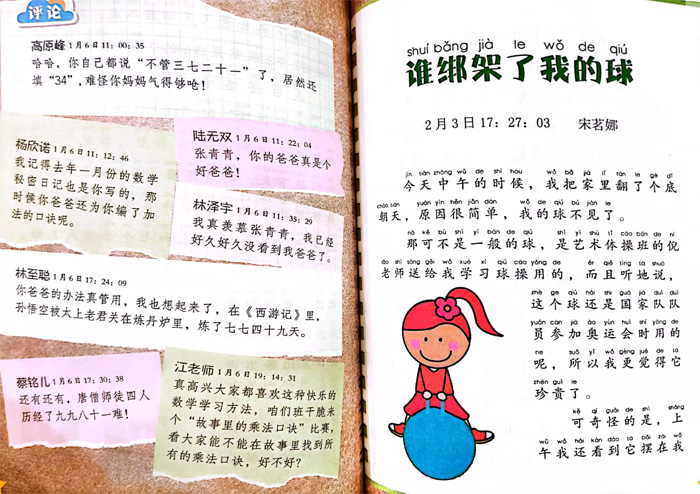 评论
高原峰 1月6日11:00:35
哈哈，你自己都说“不管三七二十一”了，居然还
填“34”，难怪你妈妈气得够呛！
杨欣诺 1月6日11:12:46
我记得去年一月份的数学
秘密日记也是你写的，那
时候你爸爸还为你编了加
法的口诀呢。
陆无双 1月6日11:22:04
张青青，你的爸爸真是个
好爸爸！
林泽宇 1月6日11:35:29
我真羡慕张青青，我已经
好久好久没看到我爸爸了。
林至聪 1月6日17:24:09
你爸爸的办法真管用，我也想起来了，在《西游记》里，
孙悟空被太上老君关在炼丹炉里，炼了七七四十九天。
蔡铭儿 1月6日17:30:38
还有还有，唐僧师徒四人
历经了九九八十一难！
江老师 1月6日19:14:31
真高兴大家都喜欢这种快乐的
数学学习方法，咱们班干脆来
个“故事里的乘法口诀”比赛，
看大家能不能在故事里找到所
有的乘法口诀，好不好？
shuí bǎng jià le wǒ de qiú
谁绑架了我的球
2月3日17:27:03 宋茗娜
jīn tiān zhōng wǔ de shí hou wǒ bǎ jiā lǐ fān le gè dǐ
今天中午的时候，我把家里翻了个底
cháo tiān yuán yīn hěn jiǎn dān wǒ de qiú bú jiàn le
朝天，原因很简单，我的球不见了。
nà kě bù shì yì bān de qiú shì yì shù tǐ cāo bān de ní
那可不是一般的球，是艺术体操班的倪
lǎo shī sòng gěi wǒ xué xí qiú cāo yòng de ér qiě tīng tā shuō
老师送给我学习球操用的，而且听她说，
zhè ge qiú hái shì guó jiā duì duì
这个球还是国家队队
yuán cān jiā ào yùn huì shí yòng de
员参加奥运会时用的
ne suǒ yǐ wǒ gèng jué de tā
呢，所以我更觉得它
zhēn guì le
珍贵了。
kě qí guài de shì shàng
可奇怪的是，上
wǔ wǒ hái kàn dào tā bǎi zài wǒ
午我还看到它摆在我